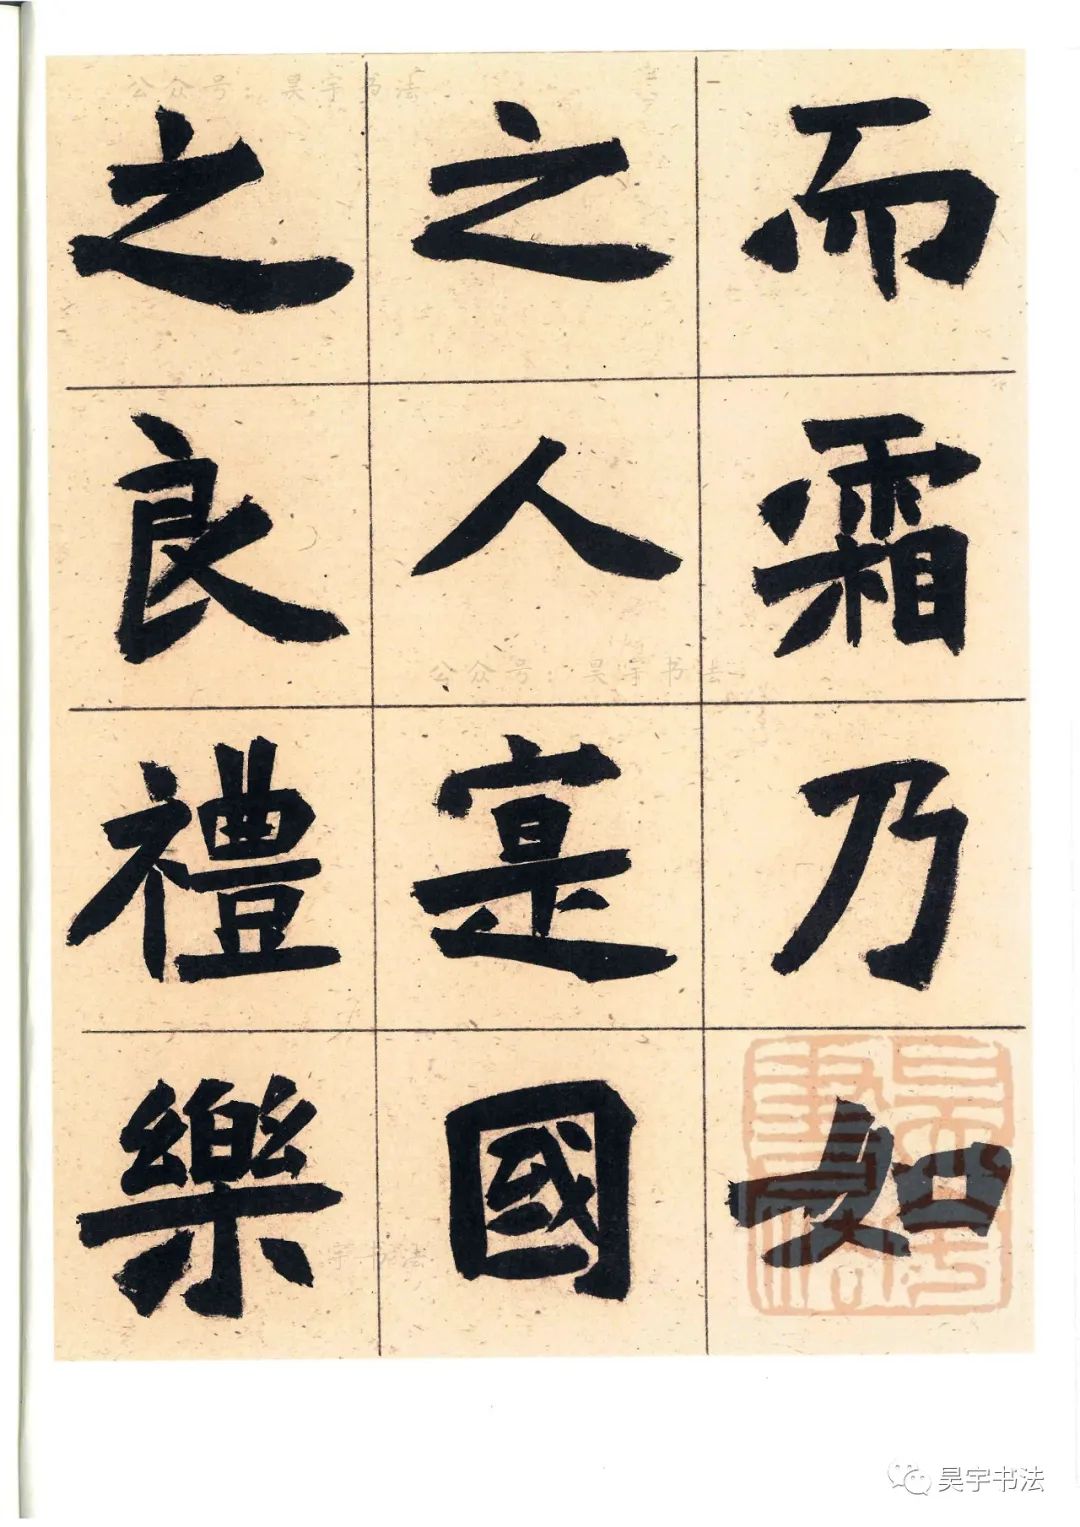 而霜乃如
之人寔國
之良禮樂
公众号：昊宇书法
公众号：昊宇书法
宇书法
昊宇书法